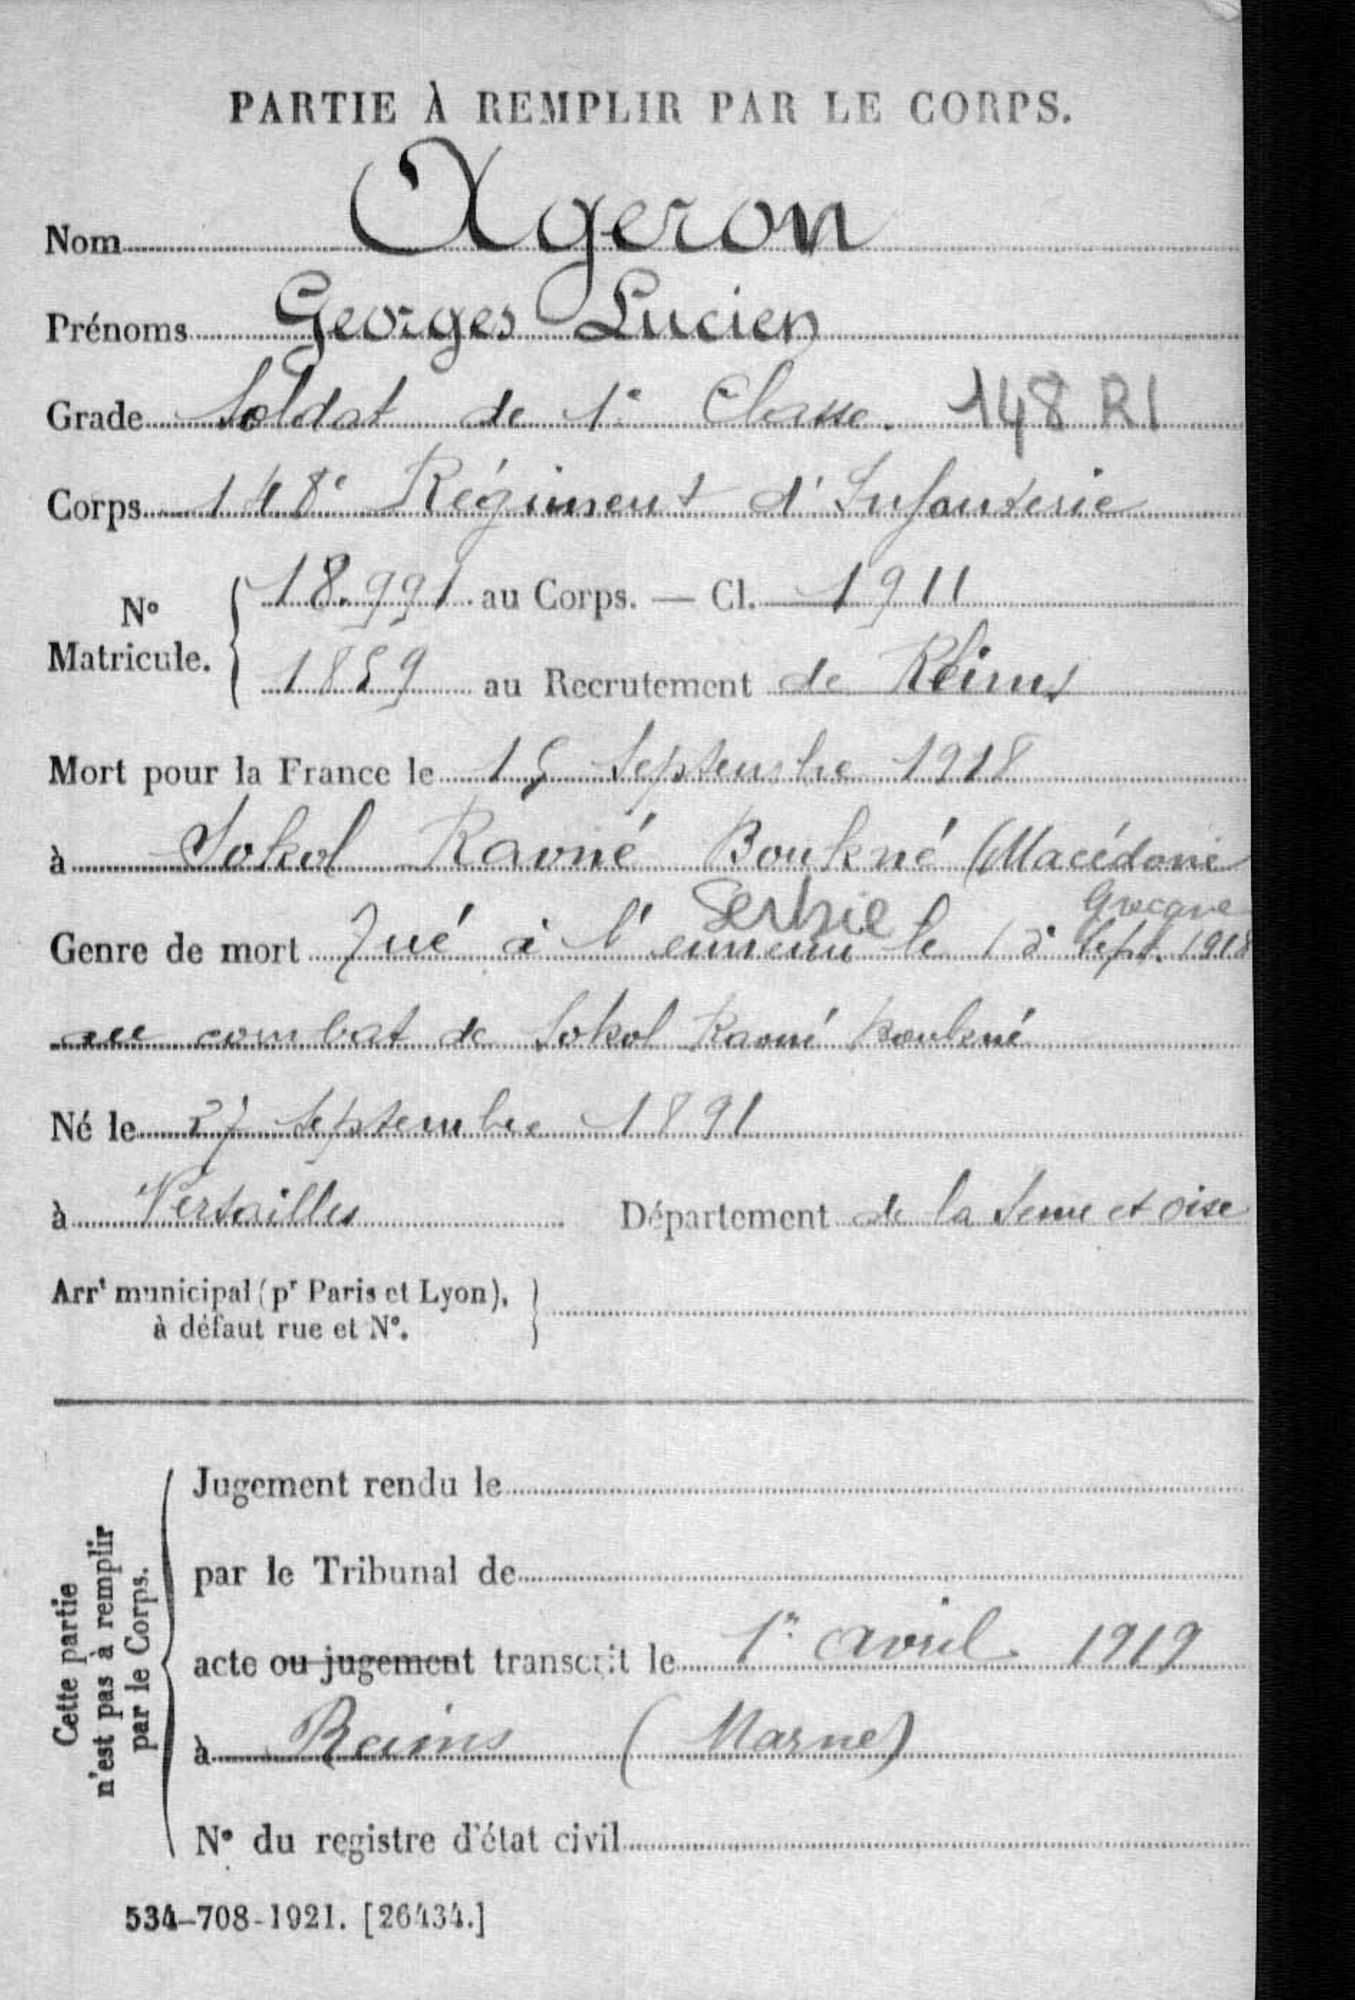 PARTIE À REMPLIR PAR LE CORPS.
Nom Ageron
Prénoms Georges Lucien
Grade Soldat de 1e Classe. 148 RI
Corps 148e Régiment d'Infanterie
N° Matricule. 18.991 au Corps. — Cl. 1911
1859 au Recrutement de Reims
Mort pour la France le 15 Septembre 1918
à Sokol Ravné Boukné (Macédonie
Serbie Grecque
Genre de mort Tué à l'ennemi le 15 Sept. 1918
au combat de Sokol Ravné Boukné
Né le 27 Septembre 1891
à Versailles Département de la Seine et Oise
Arrt municipal (pr Paris et Lyon),
à défaut rue et N°.
Cette partie n'est pas à remplir par le Corps.
Jugement rendu le
par le Tribunal de
acte ou jugement transcrit le 1er avril 1919
à Reims (Marne)
N° du registre d'état civil
534-708-1921. [26434.]